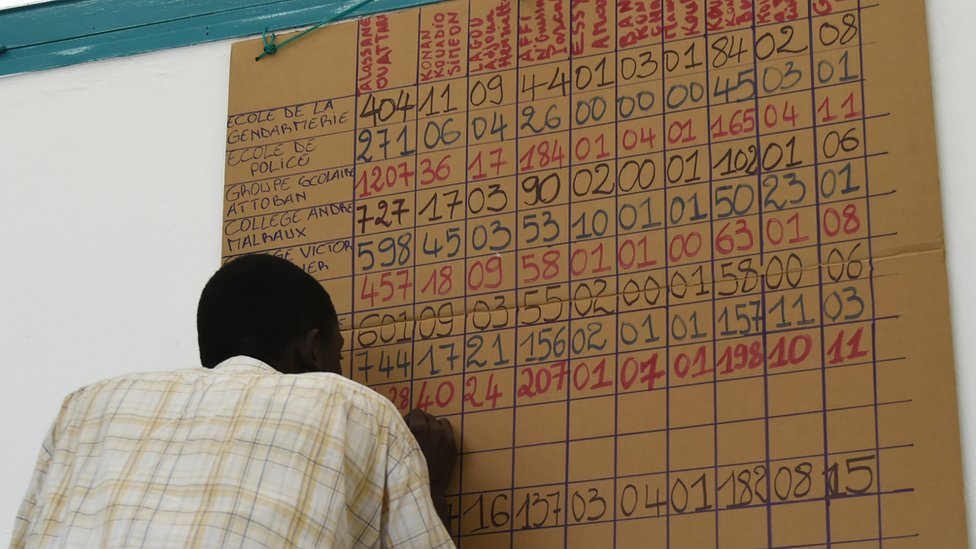 ALASSANE OUATTARA
KONAN KOUADIO SIMEON
LAGOU Adjoua Henriette
AFFI N'Guessan
ESSY Amara
ECOLE DE LA GENDARMERIE 404 11 09 44 01 03 01 84 02 08
ECOLE DE POLICE 271 06 04 26 00 00 00 45 03 01
GROUPE SCOLAIRE ATTOBAN 1207 36 17 184 01 04 01 165 04 11
COLLEGE ANDRE MALRAUX 727 17 03 90 02 00 01 102 01 06
VICTOR 598 45 03 53 10 01 01 50 23 01
457 18 09 58 01 01 00 63 01 08
601 09 03 55 02 00 01 58 00 06
744 17 21 156 02 01 01 157 11 03
40 24 207 01 07 01 198 10 11
16 137 03 04 01 182 08 15